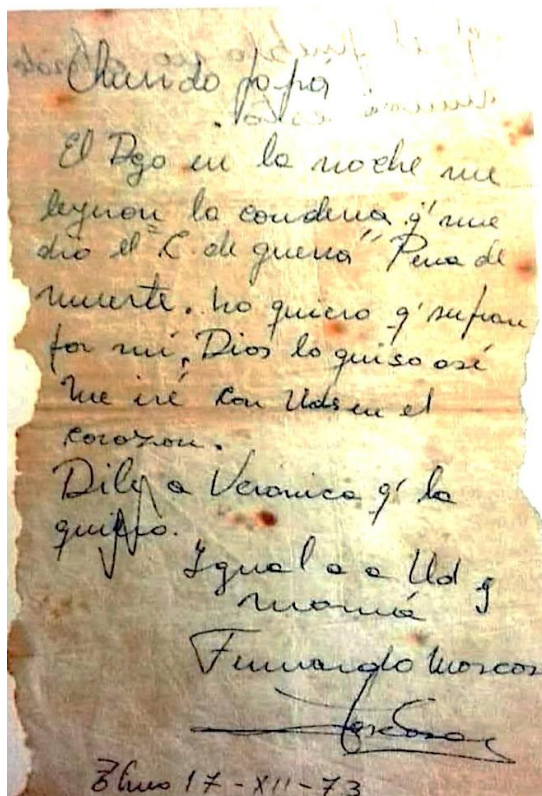 Querido papá
El Dgo en la noche me
leyeron la condena q' me
dio el "C. de guerra" Pena de
muerte. no quiero q' sufran
por mi, Dios lo quiso así
me iré con Uds en el
corazon.
Dile a Veronica q' la
quiero.
Igual a a Ud y
mamá
Fernando Moscoso
17-XII-73